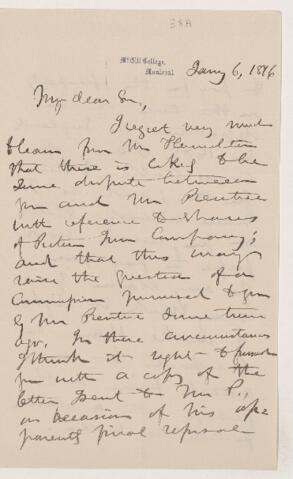 38A
McGill College,
Montreal.
Jany 6, 1876
My dear Sir,
I regret very much
to learn from Mr Hamilton
that there is likely to be
some dispute between
you and Mr Rentrée
with reference to shares
of Pictou Iron Company;
and that this may
raise the question of a
Commission promised to you
by Mr Rentrée some time
ago. In these circumstances
I think it right to furnish
you with a copy of the
letter sent to Mr P.,
on occasion of his ap-
parently final refusal